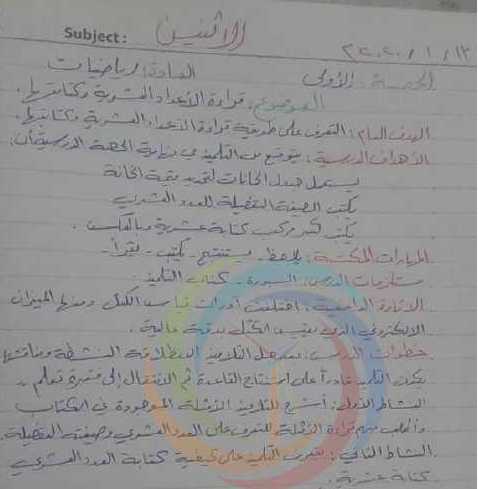 Subject: الاثنين
٢٠٢٠/١/١٣
الحصة: الأولى المادة: رياضيات
الموضوع: قراءة الأعداد العشرية وكتابتها.
الهدف العام: التعرف على طريقة قراءة الأعداد العشرية وكتابتها.
الأهداف الدرسية: يتوقع من التلميذ في نهاية الحصة الدرسية أن:
يستعمل جدول الخانات لتحديد قيمة الخانة
يكتب الصيغة التفصيلية للعدد العشري
يكتب كتابة عشرية وبالعكس
المهارات المكتسبة: يلاحظ - يستنتج - يكتب - يقرأ -
مستلزمات الدرس: السبورة - كتاب التلميذ -
الاثارة الدافعية: اختلفت أدوات قياس الكتل ومنها الميزان
الالكتروني الذي يقيس الكتل بدقة عالية.
خطوات الدرس: بعد حل التلاميذ لبطاقة الأنشطة ومناقشتها
يكون التلميذ قادراً على استنتاج القاعدة ثم الانتقال إلى فقرة تعلم -
النشاط الأول: أشرح للتلاميذ الأمثلة الموجودة في الكتاب
وأطلب منهم قراءة الأمثلة للتعرف على العدد العشري وصيغته التفصيلية.
النشاط الثاني: يتعرف التلميذ على كيفية كتابة العدد العشري
كتابة عشرية.